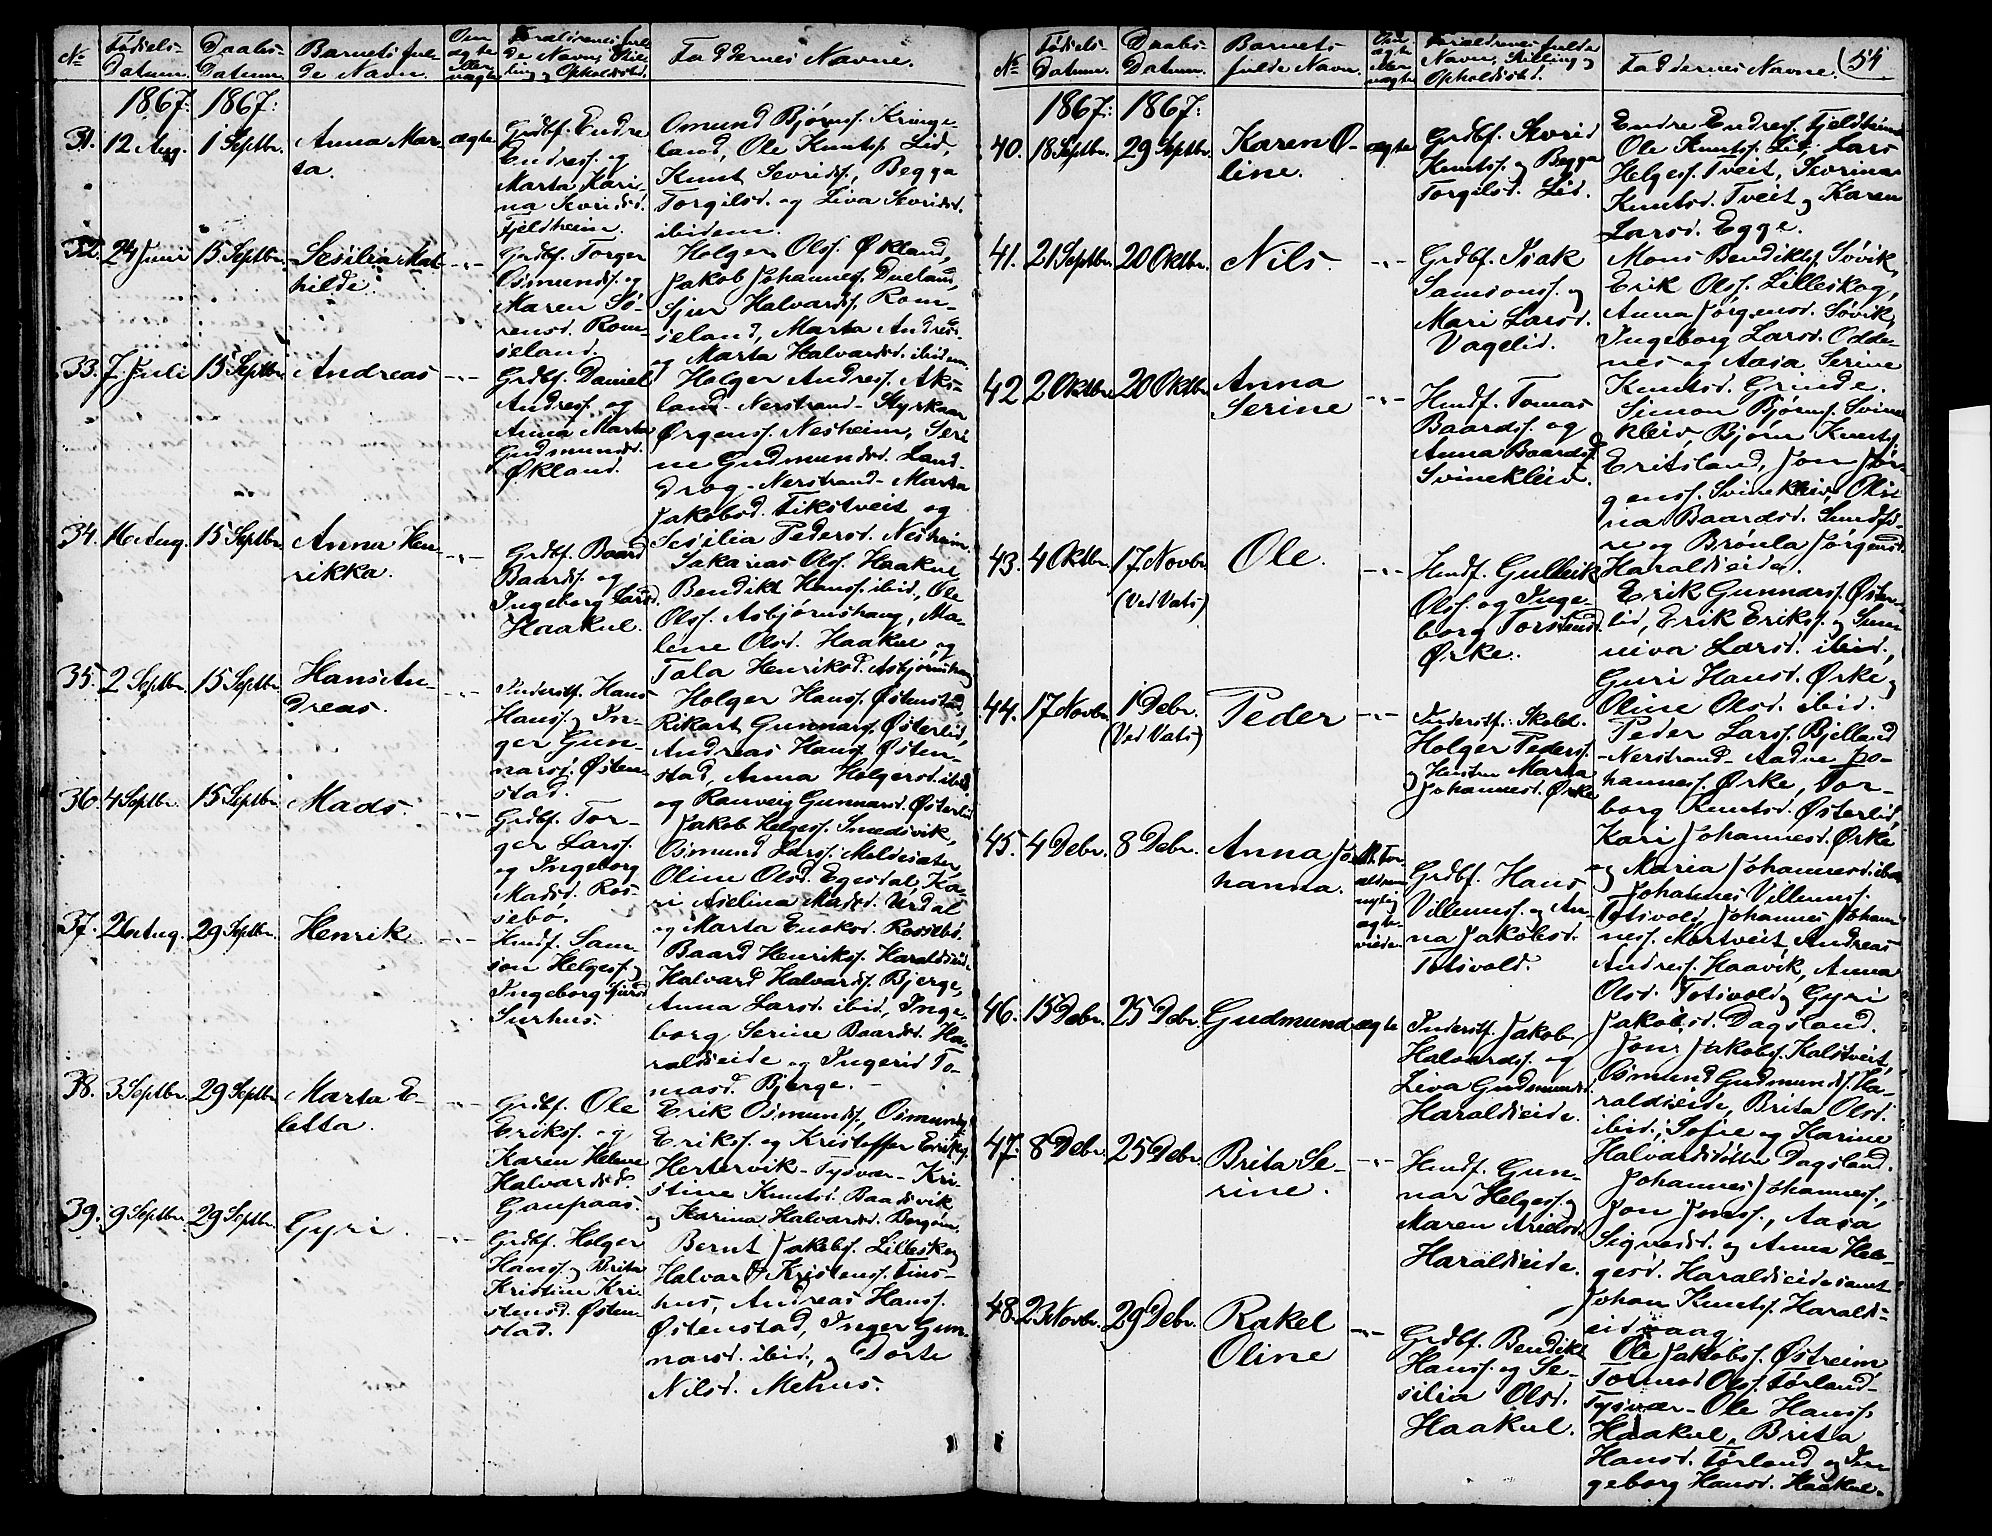 No
Fødsels-
Datum.
Daabs-
Datum.
Barnets ful-
de Navn.
Om
ægte
eller
uægte
Forældrenes ful-
de Navn, Stil-
ling og Opholdssted.
Faddernes Navne.
1867: 1867:
31. 12 Aug. 1 Septbr. Anna Mar-
ta.
ægte
Grdbf. Endre
Endress. og
Marta Kari-
na Sevridsd.
Fjeldheim.
Omund Bjørns. Kringe-
land, Ole Knuts. Lid,
Knut Sevrids., Begga
Torgilsd. og Liva Sevridsd.
ibidem.
32. 24 Juni 15 Septbr. Sesilia Mat-
hilde.
-"-
Grdbf. Torger
Osmunds. og
Maren Sø-
rensd. Rom-
seland.
Holger Ols. Økland,
Jakob Johannes. Dueland,
Sjur Halvards. Rom-
seland, Marta Andreasd.
og Marta Halvardsd. ibidem.
33. 7 Juli 15 Septbr. Andreas
-"-
Grdbf. Daniel
Andress. og
Anna Marta
Gudmundsd.
Økland.
Holger Andress. Aks-
land - Nerstrand - Styrkaar
Ørgenss. Nesheim, Seri
ne Gudmundsd. Land-
drog - Nerstrand - Marta
Jakobsd. Tikstveit og
Sesilia Pedersd. Nesheim.
34. 16 Aug. 15 Septbr. Anna Hen-
rikka.
-"-
Grdbf. Baard
Baards. og
Ingeborg Larsd.
Haakul.
Sakarias Ols. Haakul
Bendikt Hanss. ibid., Ole
Olss. Asbjørnshaug, Ma-
lene Olsd. Haakul og
Tala Henriksd. Asbjørnshaug
35. 2 Septbr. 15 Septbr. Hans An-
dreas.
-"-
Inderstf. Hans
Hanss. og In-
ger Gun-
narsd. Østen-
stad.
Holger Hanss. Østenstad,
Rikart Gunnars. Østerlid,
Andreas Hanss. Østen-
stad, Anna Holgersd. ibid.
og Ranveig Gunnarsd. Østerlid
36. 4 Septbr. 15 Septbr. Mads.
-"-
Grdbf. Tor-
ger Larss.
og Ingeborg
Madsd. Ros-
sebø.
Jakob Helgess. Smedsvik,
Osmund Larss. Meldesæter,
Oline Olsd. Egesdal, Ka-
ri Aselina Madsd. Urdal
og Marta Enoksd. Rossebø.
37. 26 Aug. 29 Septbr. Henrik
-"-
Hmdf. Sam-
son Helgess. og
Ingeborg Sjursd.
Surhus.
Baard Henriks. Haraldseide,
Halvard Halvards. Bjerge,
Anna Larsd. ibid, Inge-
borg Serine Baardsd. Ha-
raldseide og Ingerid To-
masd. Bjerge. -
38. 3 Septbr. 29 Septbr. Marta E-
letta.
-"-
Grdbf. Ole
Erikss. og
Karen Helene
Halvardsd.
Gaupaas.
Erik Osmunds., Osmund
Erikss. og Kristoffer Erikss.
Hertervik - Tysvær - Kri-
stine Knutsd. Baadsvik
og Karina Halvardsd. Borgøen.
39. 9 Septbr. 29 Septbr. Gyri.
-"-
Grdbf. Holger
Hanss. og Brita
Kristine Kri-
stensd. Østen-
stad.
Bernt Jakobs. Lilleskog
Halvard Kristenss. Tins-
hus, Andreas Hanss.
Østenstad, Inger Gun-
narsd. ibid., og Dorte
Nilsd. Mehus.
No
Fødsels-
Datum.
Daabs-
Datum.
Barnets
fulde Navn.
Om
ægte
eller
uægte
Forældrenes fulde
Navn, Stilling og
Opholdssted.
Faddernes Navne.
(54
1867: 1867:
40. 18 Septbr. 29 Septbr. Karen O-
line.
ægte
Grdbf. Sevrid
Knutss. og Begga
Torgilsd. Lid.
Endre Endress. Fjeldheim
Ole Knutss. Lid, Lars
Helgess. Tveit, Sevrina
Knutsd. Tveit og Karen
Larsd. Egge.
41. 21 Septbr. 20 Oktbr. Nils.
-"-
Grdbf. Isak
Samsons. og
Mari Larsd.
Vagelid.
Mons Bendikts. Søvik,
Erik Olss. Lilleskog,
Anna Jørgensd. Søvik,
Ingeborg Larsd. Odde-
nes og Aasa Serine
Knutsd. Grinde.
42. 2 Oktbr. 20 Oktbr. Anna
Serine
-"-
Hmdf. Tomas
Baards. og
Anna Baardsd.
Svinekleiv.
Simon Bjørns. Svine
kleiv, Bjørn Knutss.
Eritsland, Jon Jør-
genss. Svinekleiv, Oli
na Baardsd. Smedss-
re og Brønla Jørgensd.
Haraldseide.
43. 4 Oktbr. 17 Novbr. Ole.
(Ved Vats)
-"-
Hmdf. Gulleik
Olss. og Inge-
borg Torstensd.
Ørke.
Erik Gunnarss. Øster-
lid, Erik Eriks. og Sun-
niva Larsd. ibid.,
Guri Hansd. Ørke og
Oline Olsd. ibid.
44. 17 Novbr. 1 Debr. Peder
(Ved Vats)
-"-
Inderstf. Skolel.
Holger Pederss.
og Hustru Marta
Johannesd. Ørke
Peder Larss. Bjelland
- Nerstrand - Aadne Jo-
hanness. Ørke, Tor-
borg Knutsd. Østerlid,
Kari Johannesd. Ørke
og Maria Johannesd. ibid.
45. 4 Debr. 8 Debr. Anna Jo-
hanna.
Grdbf. Hans
Villumss. og An-
na Jakobsd.
Totsvold.
Johannes Villumss.
Totsvold, Johannes Johan-
ness. Mortveit, Andreas
Andress. Haavik, Anna
Olsd. Totsvold og Gyri
Jakobsd. Dagsland.
46. 15 Debr. 25 Debr. Gudmund
ægte
Inderstf. Jakob
Halvards. og
Liva Gudmundsd.
Haraldseide.
Jon Jakobs. Kalstveit,
Osmund Gudmunds. Ha-
raldseide, Brita Olsd.
ibid., Sofie og Karine
Halvardsdøttre Dagsland.
47. 8 Debr. 25 Debr. Brita Se-
rine.
-"-
Hmdf. Gun-
nar Helgess. og
Maren Aridsd.
Haraldseide.
Johannes Johanness.,
Jon Jonss., Aasa
Sigvedsd. og Anna Hel-
gesd. Haraldseide samt
Johan Knutss. Harald-
seidvaag
48. 23 Novbr. 29 Debr. Rakel
Oline
-"-
Grdbf. Bendikt
Hanss. og Se-
silia Olsd.
Haakul.
Ole Jakobss. Østreim
Tormod Olss. Førland-
Tysvær - Ole Hanss.
Haakul, Brita
Hansd. Førland og In
geborg Hansd. Haakul.